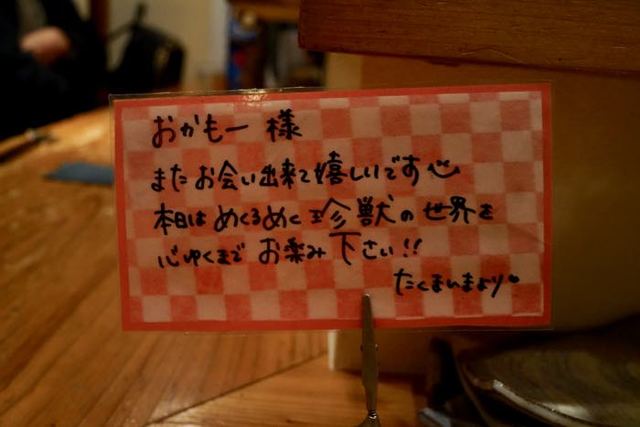 おかもー 様
またお会い出来て嬉しいです
本日は めくるめく 珍獣の世界を
心ゆくまで お楽み下さい!!
たくまいまより♥